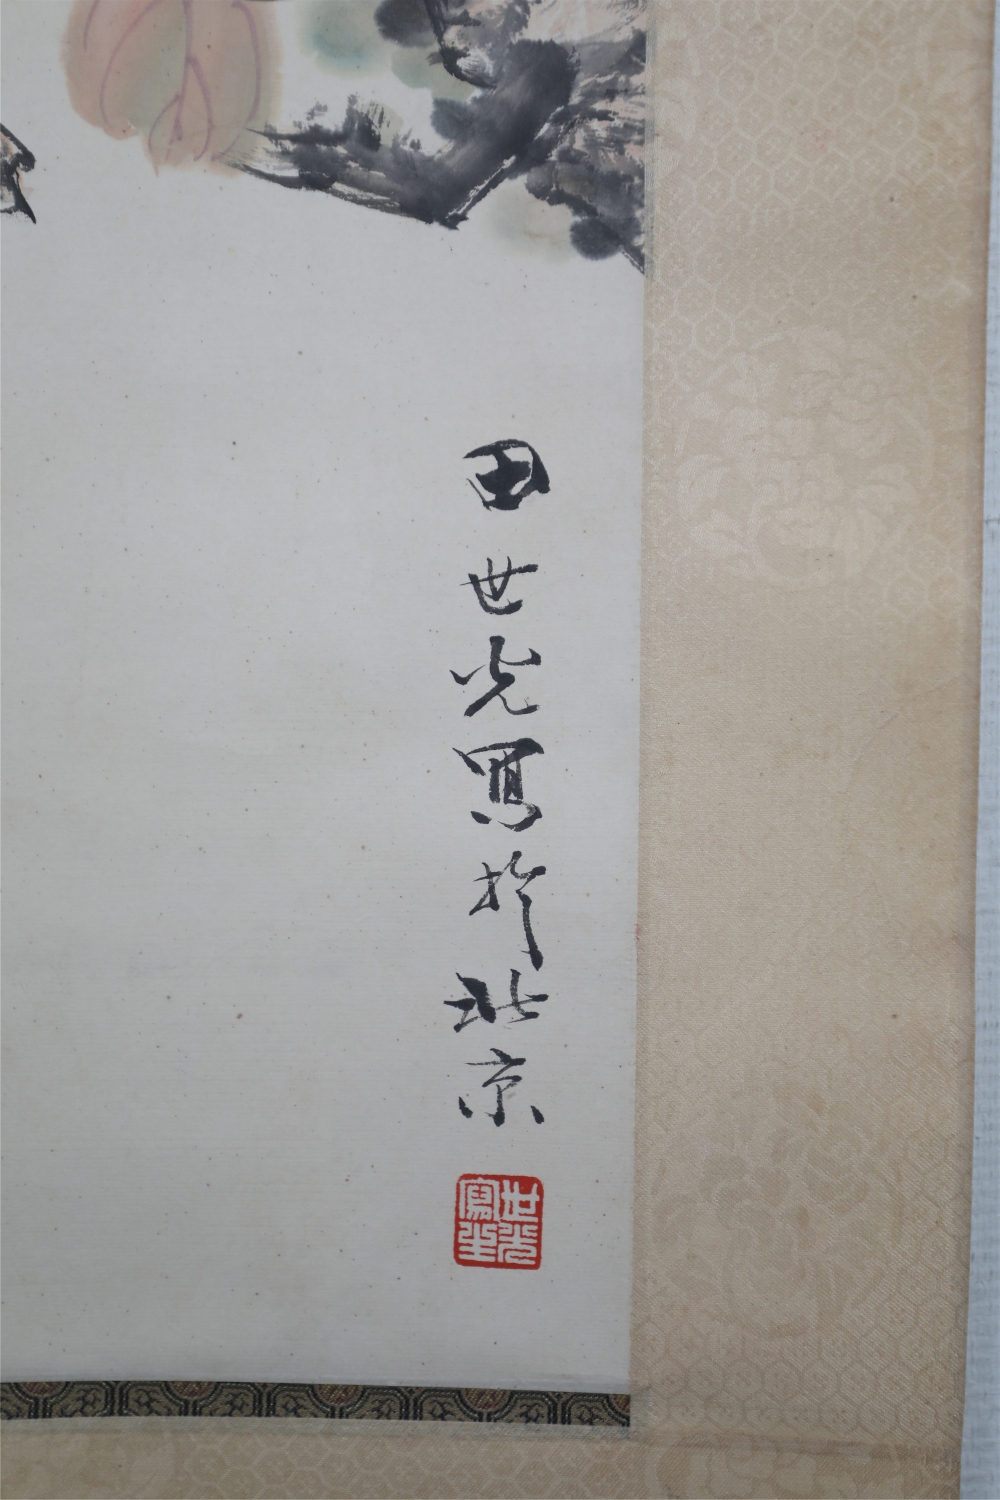 田世光寫於北京
世光
寫生